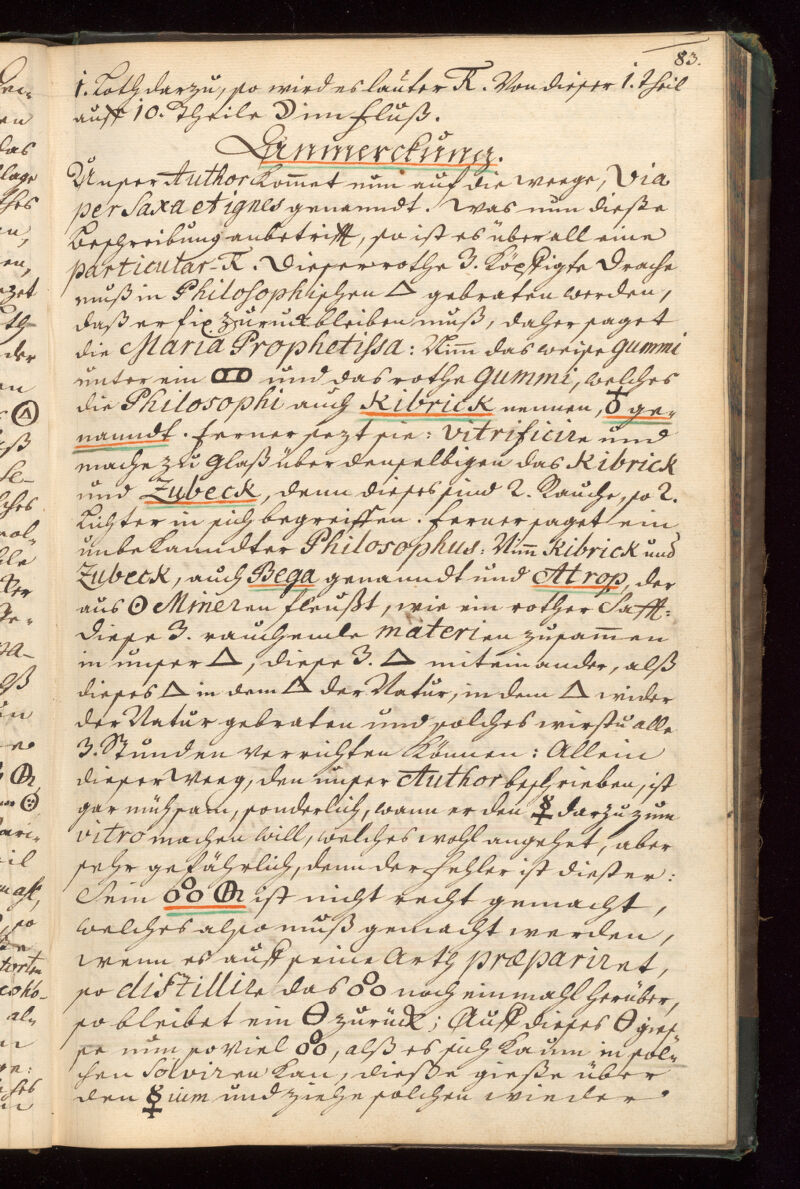 83.
1. Loth darzu, so wird es lauter R. Von dieser 1. theil
auff 10. Theile ☽ im Fluß.
Anmerckung.
Unser Author kom̄et nun auf die weege, Via
per Saxa et ignes genanndt. Was nun dieße
Beschreibung anbetrifft, so ist es überall eine
particular-R. Dieser rothe 3. Köpffigte Drache
muß in Philosophischen △ gebraten werden,
daß er fix zuruck bleiben muß, daher saget
die Maria Prophetissa: Nim̄ das weise Gummi
unter ein und das rothe Gummi, welches
die Philosophi auch Kibrick nennen, ♁ ge-
nanndt. Ferner sezt sie: Vitrificire und
mache zu Glaß über denselbigen das Kibrick
und Zubeck, denn dieses sind 2. Rauche, so 2.
Lichter in sich begreiffen. Ferner saget ein
unbekanndter Philosophus: Nim̄ Kibrick und
Zubeck, auch Bega genanndt und Atrop, der
aus ☉ Mineren fleußt, wie ein rother Safft:
Diese 3. rauchende materien zusam̄en
in unser △, diese 3. △ miteinander, alß
dieses △ in dem △ der Natur, in dem △ wider
der Natur gebraten und solches wirstu alle
3. Stunden verrichten können: Allein
dieser Weeg, den unser Author beschrieben, ist
gar mühsam, sonderlich, wann er den ☿ darzu zum
vitro machen will, welches wohl angehet, aber
sehr gefährlich, denn der Fehler ist dießer:
Sein ist nicht recht gemacht,
welches also muß gemacht werden,
wenn es auff seine Arth præpariret,
so distillire das noch einmahl herüber,
so bleibet ein Θ zurück; Auff dieses Θ gies-
se nun so viel, alß es sich kaum in sol-
chen Solviren kan, dieße gieße über
den ☿ium und ziehe solchen wieder